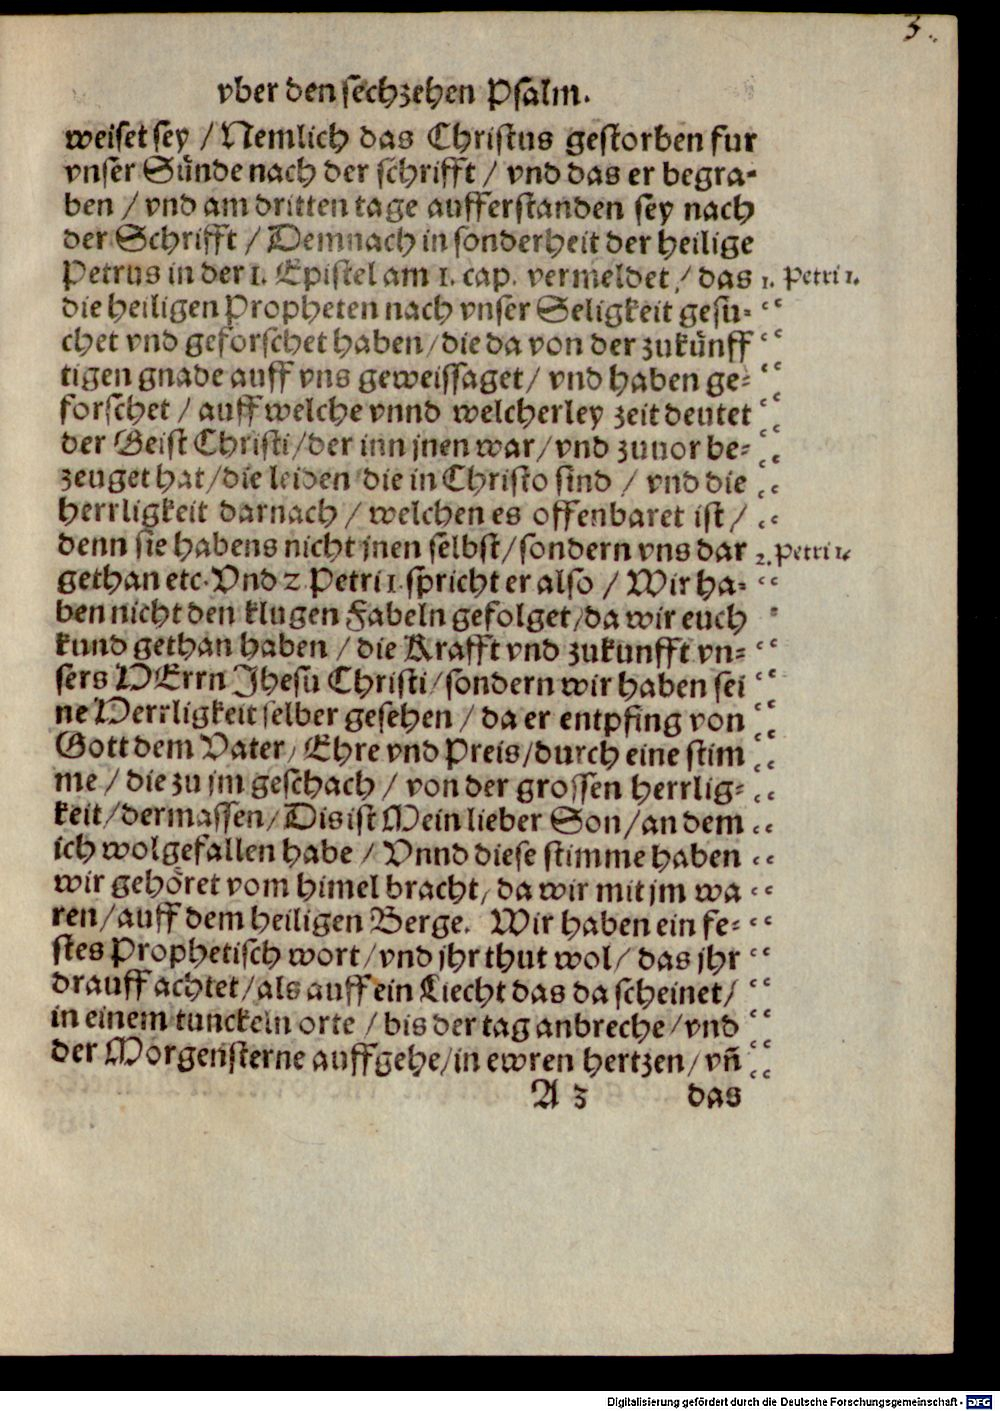 3.
vber den sechzehen Psalm.
weiset sey / Nemlich das Christus gestorben fur
vnser Sünde nach der schrifft / vnd das er begra-
ben / vnd am dritten tage aufferstanden sey nach
der Schrifft / Demnach in sonderheit der heilige
Petrus in der 1. Epistel am 1. cap. vermeldet / das 1. Petri 1.
die heiligen Propheten nach vnser Seligkeit gesu-
chet vnd geforschet haben / die da von der zukünff
tigen gnade auff vns geweissaget / vnd haben ge-
forschet / auff welche vnnd welcherley zeit deutet
der Geist Christi / der inn jnen war / vnd zuuor be-
zeuget hat / die leiden die in Christo sind / vnd die
herrligkeit darnach / welchen es offenbaret ist /
denn sie habens nicht jnen selbst / sondern vns dar 2. Petri 1.
gethan etc. Vnd 2. Petri 1. spricht er also / Wir ha-
ben nicht den klugen Fabeln gefolget / da wir euch
kund gethan haben / die Krafft vnd zukunfft vn-
sers HErrn Jhesu Christi / sondern wir haben sei
ne Herrligkeit selber gesehen / da er entpfing von
Gott dem Vater / Ehre vnd Preis / durch eine stim
me / die zu jm geschach / von der grossen herrlig-
keit / dermassen / Dis ist Mein lieber Son / an dem
ich wolgefallen habe / Vnnd diese stimme haben
wir gehöret vom himel bracht / da wir mit jm wa
ren / auff dem heiligen Berge. Wir haben ein fe-
stes Prophetisch wort / vnd jhr thut wol / das jhr
drauff achtet / als auff ein Liecht das da scheinet /
in einem tunckeln orte / bis der tag anbreche / vnd
der Morgensterne auffgehe / in ewren hertzen / vñ
A 3 das
Digitalisierung gefördert durch die Deutsche Forschungsgemeinschaft - DFG